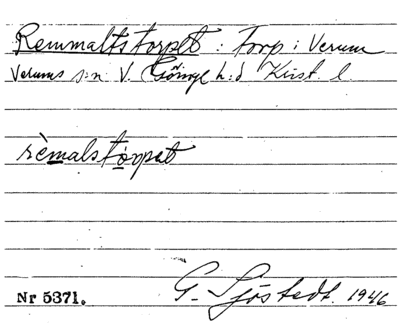 Remmaltstorpet : torp i Verum
Verums s:n V. Göinge h:d Krist. l.
rèmalstòrpet
Nr 5371. G. Sjöstedt. 1946